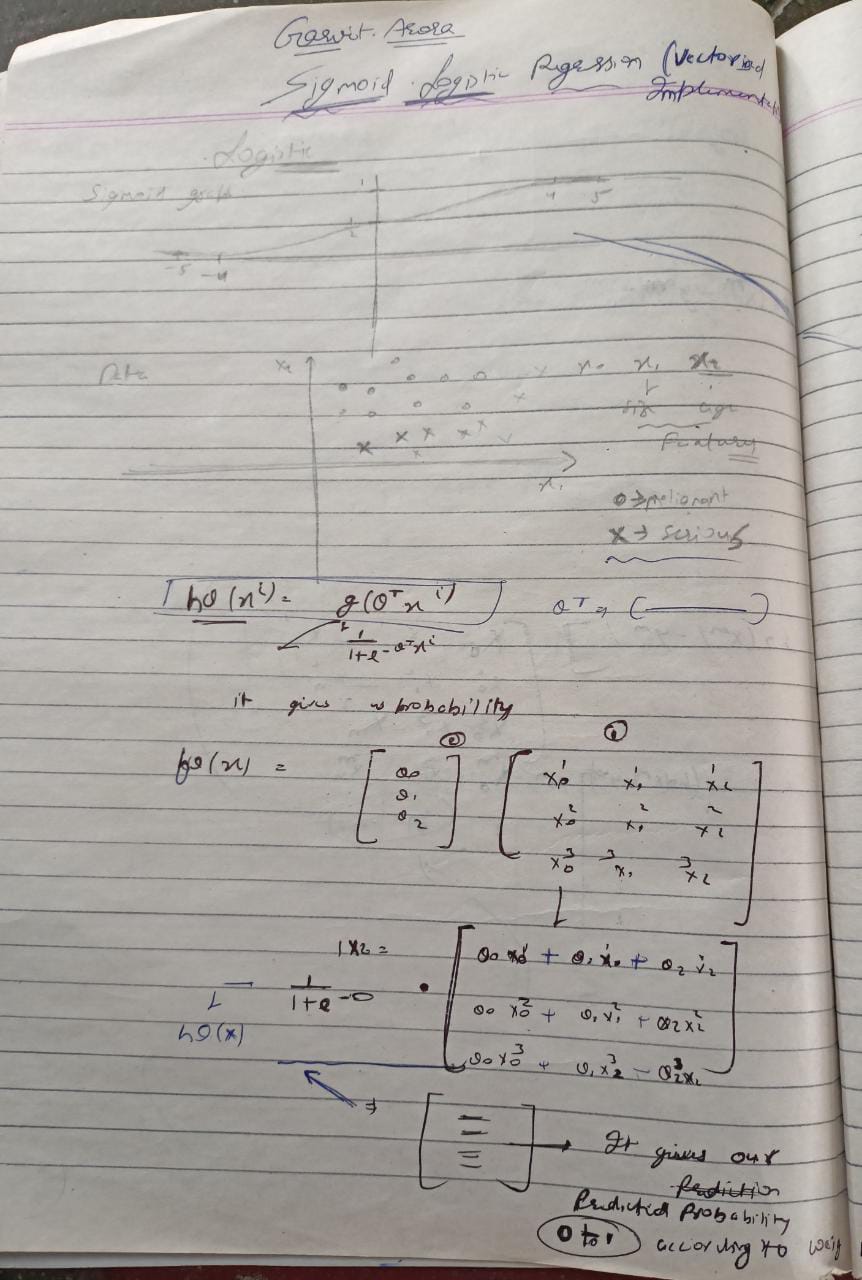 Garvit. Arora
Sigmoid Logistic Regression (Vectorized
Implementat
Logistic
Sigmoid graph
1
1/2
4 5
-5 -4
Data
x₂
x₀ x₁ x₂
size age
Features
x₁
O → melignant
X → serious
hθ(xⁱ) = g(θᵀxⁱ)
θᵀ ⇒ [ ]
1/1+e-θᵀxⁱ
it gives probability
② ①
hθ(x) = [θ₀ θ₁ θ₂] [x₀¹ x₁¹ x₂¹
x₀² x₁² x₂²
x₀³ x₁³ x₂³]
θ₀x₀¹ + θ₁x₀¹ + θ₂x₂¹
1/1+e-θ
θ₀x₀² + θ₁x₁² + θ₂x₂²
hθ(x)
θ₀x₀³ + θ₁x₂³ - θ₂³x₂
⇒ [ ] → It gives our
Prediction
Predicted Probability
0 to 1 according to